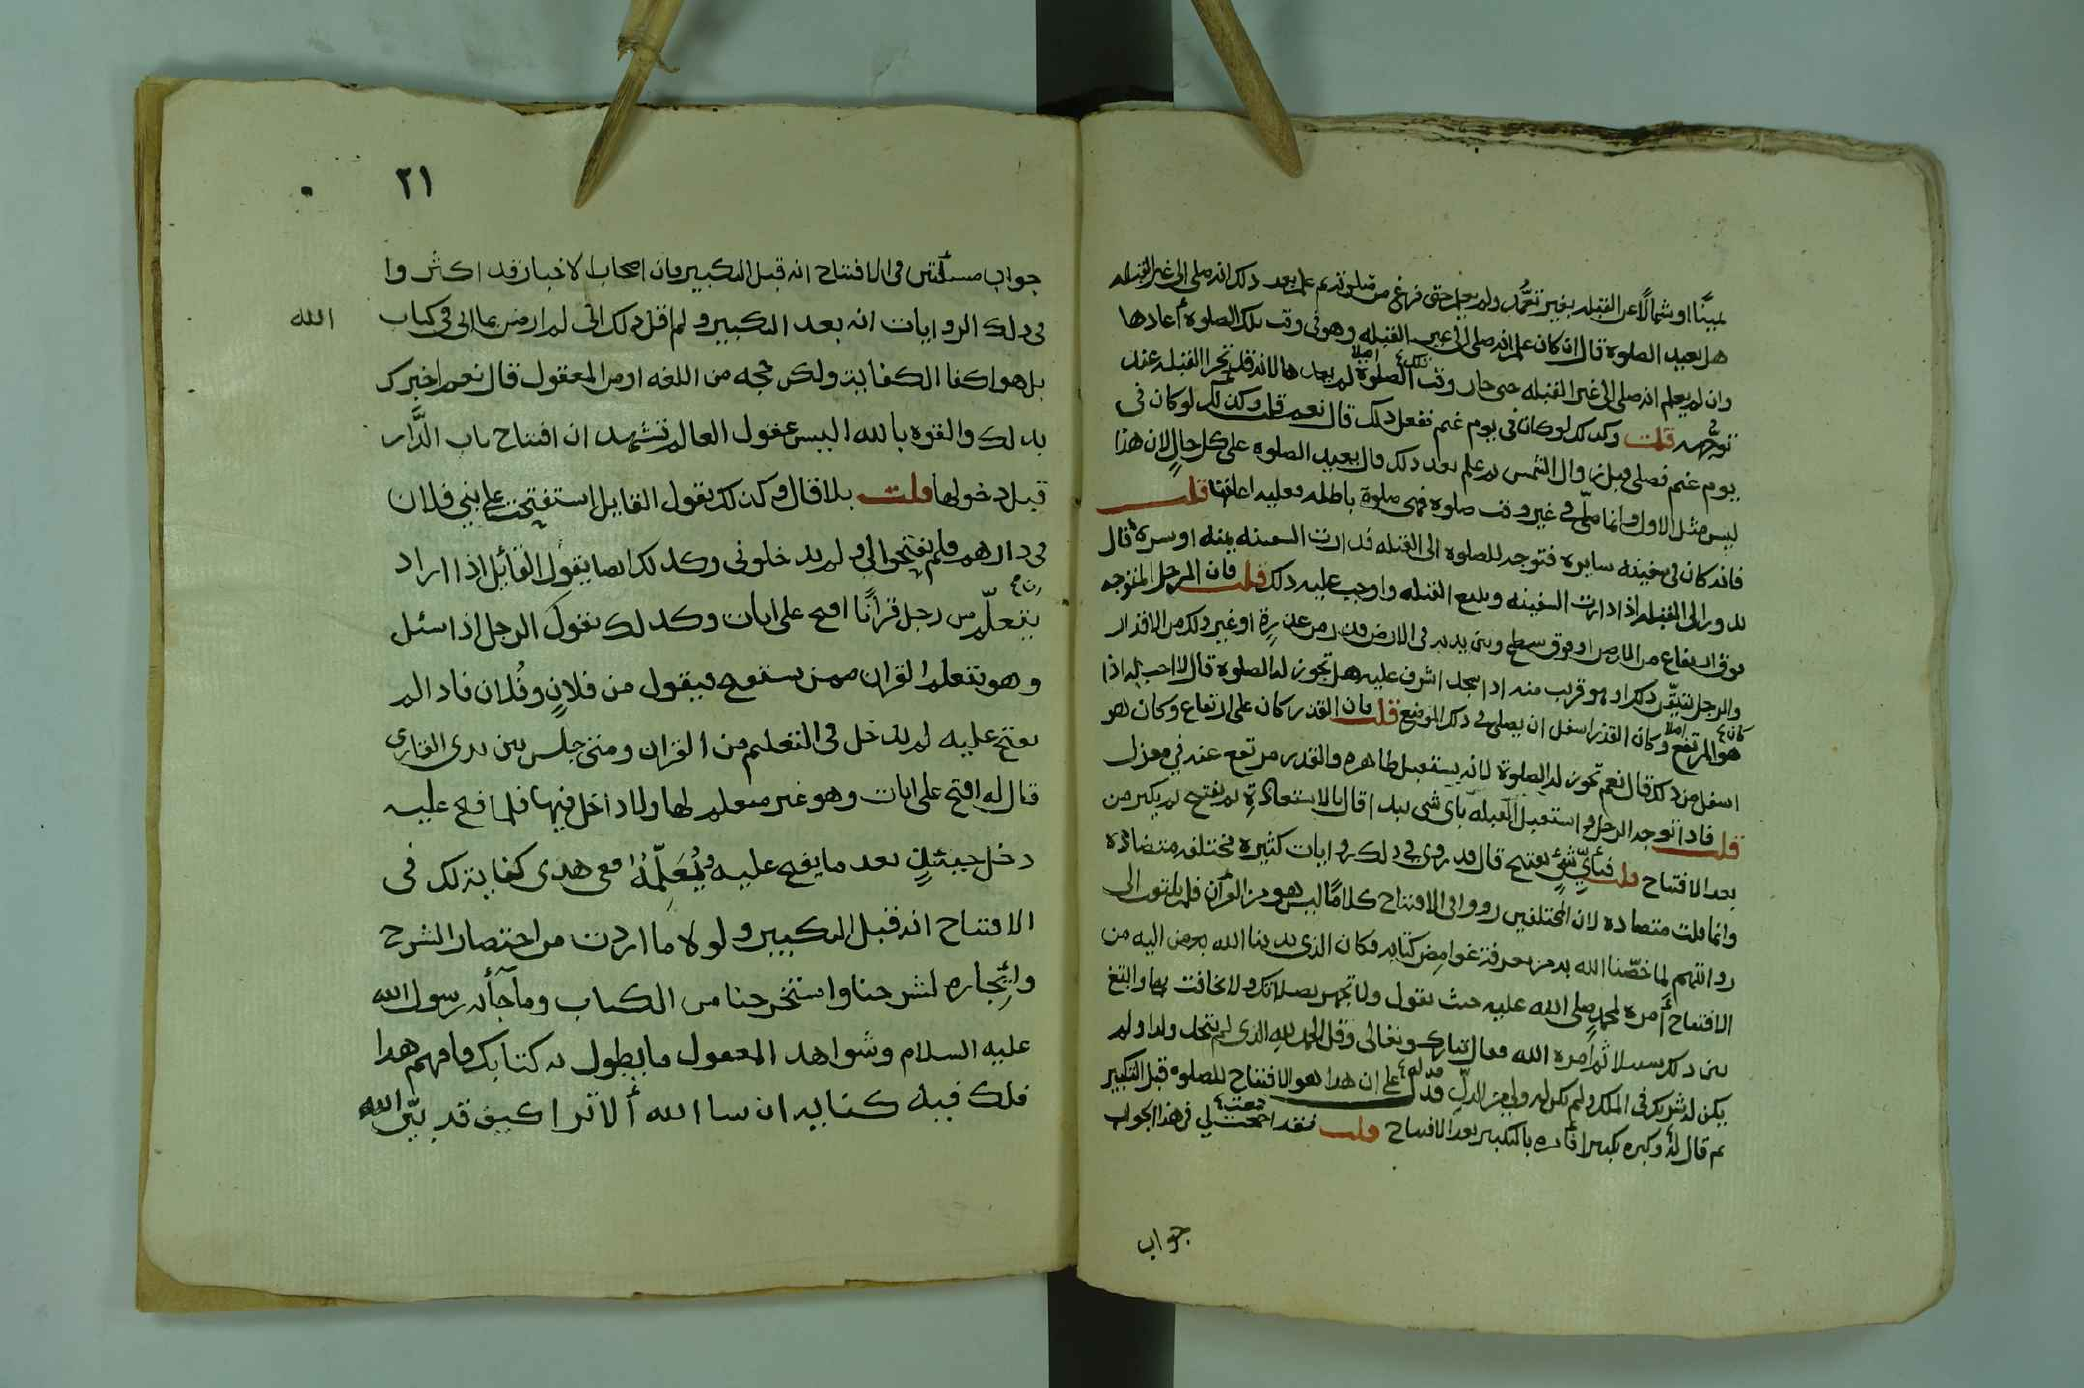 يمينًا او شمالًا عن القبله بغير تعمُّد ولم يعلم حتى فرغ من صلوته ثم علم بعد ذلك انه صلى الى غير القبله
هل يعيد الصلوة قال ان كان علم انه صلى الى غير القبله وهو فى وقت تلك الصلوة أعادها
وان لم يعلم انه صلى الى غير القبله حتى جاز وقت تلك الصلوة لم يعدها لانه قد تحرا القبله عند
توجّهه قلت وكذلك لو كان فى يوم غيم ففعل ذلك قال نعم قلت وكذلك لو كان فى
يوم غيم فصلى قبل زوال الشمس ثم علم بعد ذلك قال يعيد الصلوة على كل حالٍ لان هذا
ليس مثل الاول وانما صلّى فى غير وقت صلوة فهى صلوة باطله وعليه اعادتها قلت
فانه كان فى سفينه سايره فتوجه للصلوة الى القبله فدارت السفينه يمنه او يسره قال
يدور الى القبله اذا دارت السفينه ويتبع القبله واوجب عليه ذلك قلت فان الرجل المتوجه
فوق ارتفاع من الارض او فوق سطح وبين يديه فى الارض قذر من عذرة او غير ذلك من الاقذار
والرجل يتيقّن ذلك او هو قريب منه اذا سجد اشرف عليه هل تجوز له الصلوة قال لا احب له اذا
كان هو المرتفع وكان القذر اسفل ان يصلى فى ذلك الموضع قلت فان القذر كان على ارتفاع وكان هو
اسفل من ذلك قال نعم تجوز له الصلوة لانه يستقبل طاهره والقذر مرتفع عنه فى معزل
قلت فاذا توجه الرجل واستقبل القبله بأى شى يبدا قال بالاستعاذة ثم يفتتح ثم يكبر من
بعد الافتتاح قلت فبأيّ شئٍ يفتتح قال قد روى فى ذلك روايات كثيرة مختلفه متضادة
وانما قلت متضاده لان المختلفين رووا فى الافتتاح كلامًا ليس هو من القرآن فلم يلتفت الى
روايتهم لما خصّنا الله به من معرفة غوامِض كتابه فكان الذى يدينا الله بعرض اليه من
الافتتاح أمره لمحمدٍ صلى الله عليه حيث يقول ولا تجهر بصلاتك ولا تخافت بها وابتغ
بين ذلك سبيلا ثم أمره الله فقال تبارك وتعالى وقل الحمد لله الذى لم يتخذ ولدا ولم
يكن له شريك فى الملك ولم يكن له ولي من الذلّ فدّل على ان هذا هو الافتتاح للصلوة قبل التكبير
ثم قال له وكبره تكبيرا فأمره بالتكبير بعد الافتتاح قلت فقد جمعت لى فى هذا الجواب
جواب
٢١
جواب مسئلتين فى الافتتاح انه قبل التكبير فان اصحاب الاخبار قد اكثروا
فى ذلك الروايات انه بعد التكبير ولم اقل ذلك انى لم ارض بما الى فى كتاب الله
بل هو اكفا الكفاية ولكن حجه من اللغه او من المعقول قال نعم اخبرك
بذلك والقوه بالله اليس عقول العالم تشهد ان افتتاح باب الدَّار
قبل دخولها قلت بلا قال وكذلك يقول القايل استفتحت على بنى فلان
فى دارهم فلم يفتحوا لى ولم يدخلونى وكذلك ايضا يقول القائل اذا اراد
يتعلّم من رجل قرانًا افتح على ايات وكذلك يقول الرجل اذا سئل
وهو يتعلم القران ممن يستفتح فيقول من فلانٍ وفُلان فاذا لم
يفتح عليه لم يدخل فى التعليم من القران ومتى جلس بين يدى القارى
قال له افتح على ايات وهو غير متعلم لها ولا داخل فيها فلما فتح عليه
دخل حينئذٍ بعد ما يفتح عليه ويُعَلِّمُهُ ففى هذى كفاية لك فى
الافتتاح انه قبل التكبير ولولا ما اردت من اختصار الشرح
وايِجازه لشرحنا واستخرجنا من الكتاب وما جأ به رسول الله
عليه السلام وشواهد المعقول ما يطول به كتابك فافهم هذا
فلك فيه كفايه ان شا الله ألا ترا كيف قد بيّن الله